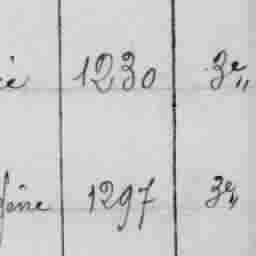 1230 3e"
1297 3e"